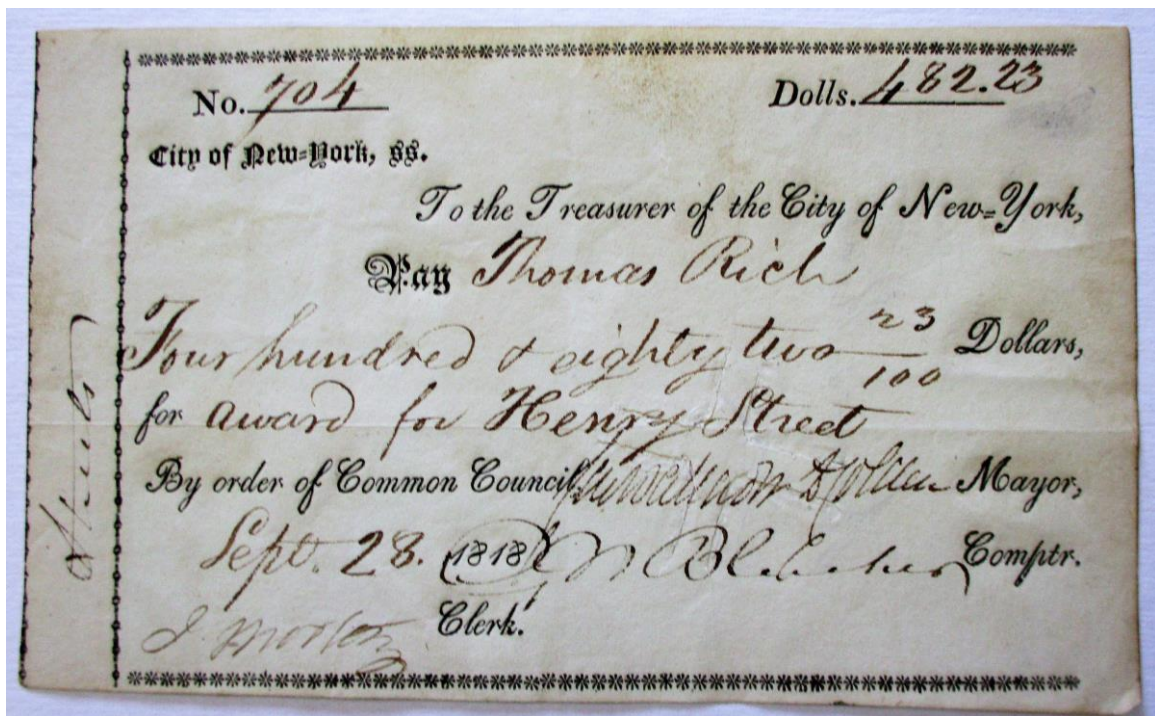 No. 704 Dolls. 482.23
City of New=York, ss.
To the Treasurer of the City of New=York,
Pay Thomas Rich
Four hundred & eighty two 23/100 Dollars,
for award for Henry Street
By order of Common Council, Cadwallader D Colden Mayor,
Sept. 28. 1818 Bleecker Comptr.
J Morton Clerk.
Streets